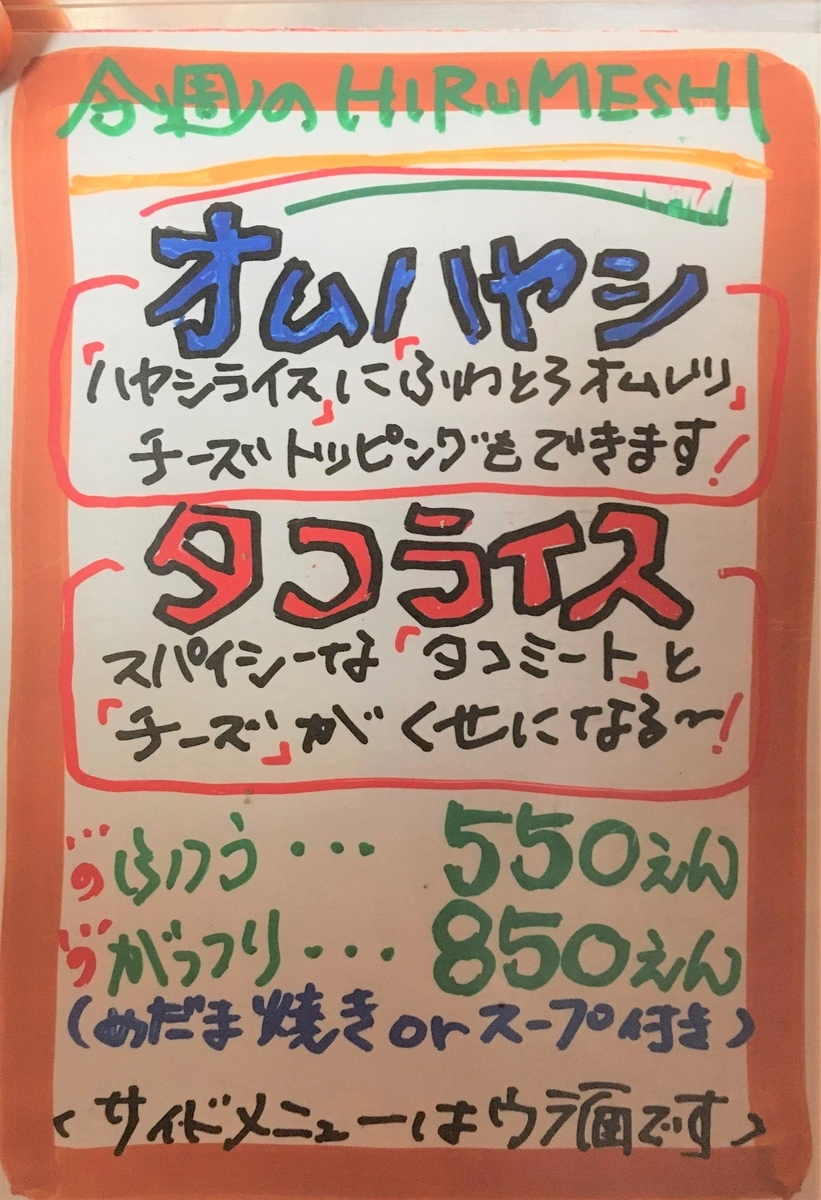 今週のHIRUMESHI
オムハヤシ
「ハヤシライス」に「ふわとろオムレツ」
チーズトッピングもできます!
タコライス
スパイシーな「タコミート」と
「チーズ」がくせになる〜!
ふつう・・・550えん
がっつり・・・850えん
(めだま焼きorスープ付き)
<サイドメニューはウラ面です>